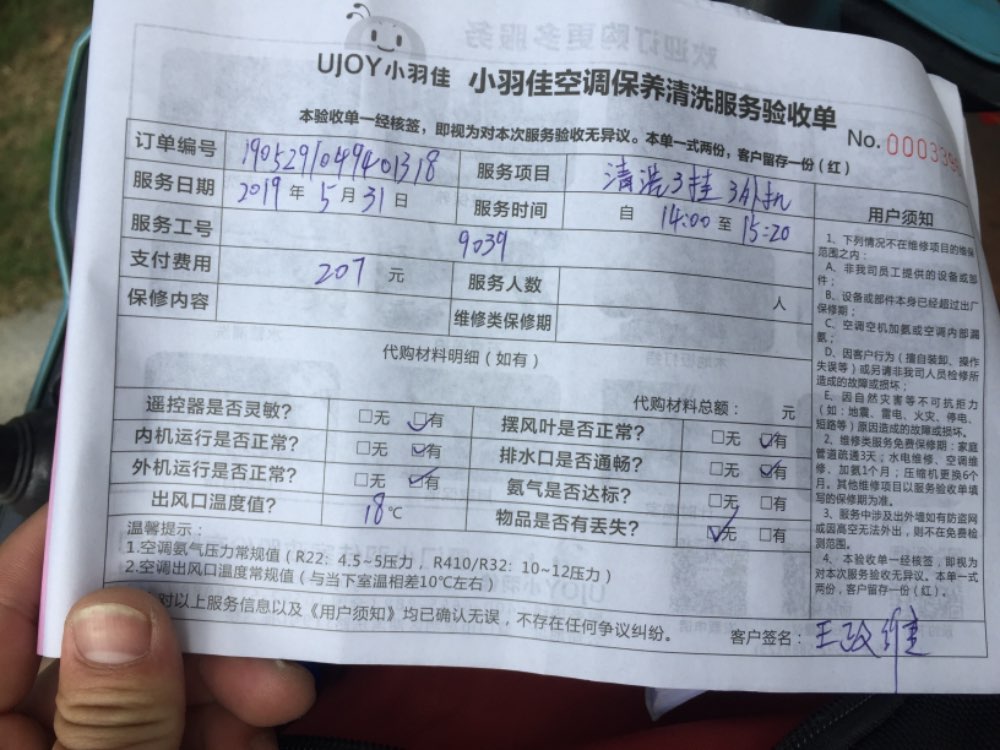 欢迎订购更多服务
UJOY小羽佳 小羽佳空调保养清洗服务验收单
本验收单一经核签，即视为对本次服务验收无异议。本单一式两份，客户留存一份（红）
No.
订单编号 1905291049401318 服务项目 清洗3挂3外机
服务日期 2019年5月31日 服务时间 自14:00至15:20
服务工号 9039
支付费用 207元 服务人数 人
保修内容 维修类保修期
代购材料明细（如有）
代购材料总额： 元
遥控器是否灵敏？ □无 ☑有 摆风叶是否正常？ □无 ☑有
内机运行是否正常？ □无 ☑有 排水口是否通畅？ □无 ☑有
外机运行是否正常？ □无 ☑有 氨气是否达标？ □无 □有
出风口温度值？ 18℃ 物品是否有丢失？ ☑无 □有
温馨提示：
1.空调氨气压力常规值（R22：4.5~5压力，R410/R32：10~12压力）
2.空调出风口温度常规值（与当下室温相差10℃左右）
对以上服务信息以及《用户须知》均已确认无误，不存在任何争议纠纷。
客户签名：王政维
用户须知
1、下列情况不在维修项目的维保
范围之内：
A、非我司员工提供的设备或部
件；
B、设备或部件本身已经超过出厂
保修期；
C、空调空机加氨或空调内部漏
氨；
D、因客户行为（擅自装卸、操作
失误等）或另请非我司人员检修所
造成的故障或损坏；
E、因自然灾害等不可抗拒力
（如：地震、雷电、火灾、停电、
短路等）原因造成的故障或损坏。
2、维修类服务免费保修期：家庭
管道疏通3天；水电维修、空调维
修、加氨1个月；压缩机更换6个
月。其他维修项目以服务验收单填
写的保修期为准。
3、服务中涉及出外墙如有防盗网
或因高空无法外出，则不在免费检
测范围。
4、本验收单一经核签，即视为
对本次服务验收无异议。本单一式
两份，客户留存一份（红）。